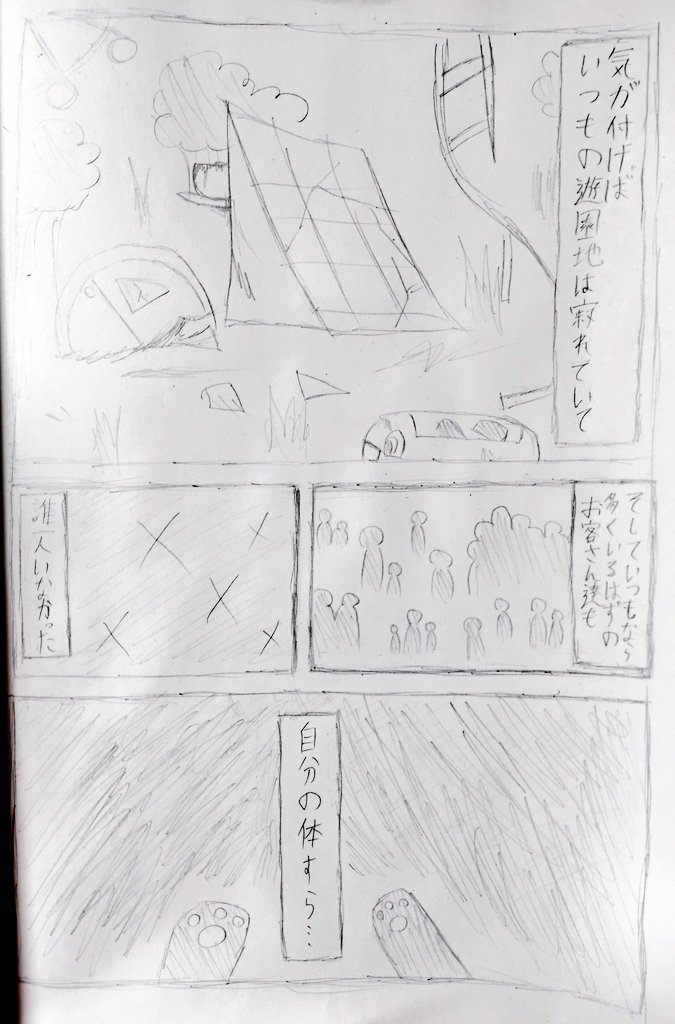 気が付けば
いつもの遊園地は寂れていて
そしていつもなら
多くいるはずの
お客さん達も
誰一人いなかった
自分の体すら…